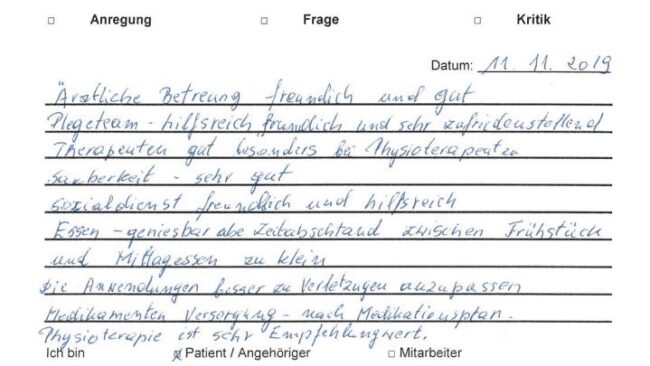 □ Anregung □ Frage □ Kritik
Datum: 11. 11. 2019
Ärztliche Betreung freundich und gut
Plegeteam - hilfsreich freundich und sehr zufriedenstellend
Therapeuten gut besonders bei Physioterapeuten
Sauberkeit - sehr gut
Sozialdienst freundlich und hilfsreich
Essen - geniesbar abe Zeitabschtand zwischen Frühstück
und Mittagessen zu klein
Die Anwendungen besser zu Verletzugen anzupassen
Medikamenten Versorgung - nach Medikationsplan.
Physioterapie ist sehr Empfehlungwert.
Ich bin ☒ Patient / Angehöriger □ Mitarbeiter